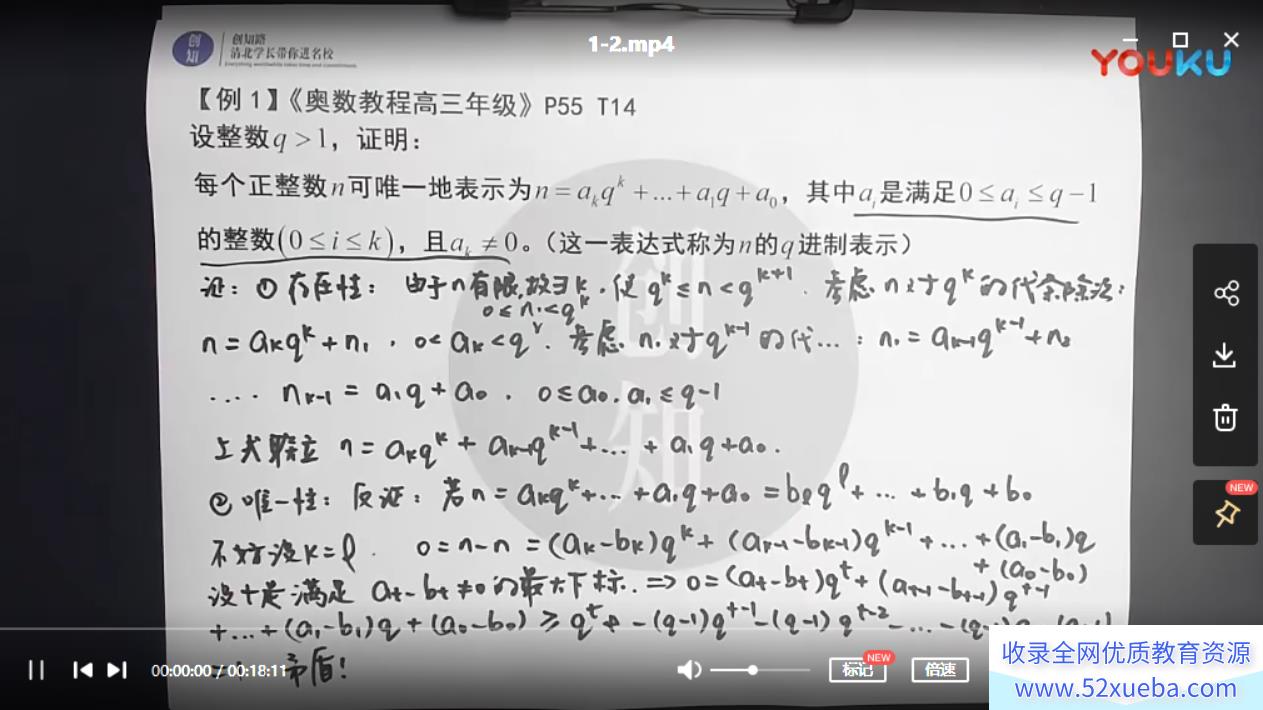 1-2.mp4
YOUKU
创知
创知路
清北学长带你进名校
【例 1】《奥数教程高三年级》P55 T14
设整数q >1，证明：
每个正整数n可唯一地表示为n = aₖqᵏ +...+ a₁q + a₀，其中aᵢ是满足0 ≤ aᵢ ≤ q −1
的整数(0 ≤ i ≤ k)，且aₖ ≠ 0。（这一表达式称为n的q进制表示）
证：① 存在性：由于n有限,故∃k，使 qᵏ ≤ n < qᵏ⁺¹. 考虑 n对于qᵏ的代余除法：
0 ≤ n₁ < qᵏ
n = aₖqᵏ + n₁，0 < aₖ < q. 考虑 n₁对于qᵏ⁻¹ 的代...：n₁ = aₖ₋₁qᵏ⁻¹ + n₂
.... nₖ₋₁ = a₁q + a₀. 0 ≤ a₀.a₁ ≤ q-1
上式联立 n = aₖqᵏ + aₖ₋₁qᵏ⁻¹ + ... + a₁q + a₀.
② 唯一性：反证：若 n = aₖqᵏ + ... + a₁q + a₀ = bₗqˡ + ... + b₁q + b₀
不妨设 k = l. 0 = n-n = (aₖ-bₖ)qᵏ + (aₖ₋₁-bₖ₋₁)qᵏ⁻¹ + ... + (a₁-b₁)q
+ (a₀-b₀)
设t是满足 aₜ-bₜ≠0 的最大下标. ⇒ 0 = (aₜ-bₜ)qᵗ + (aₜ₋₁-bₜ₋₁)qᵗ⁻¹
+ ... + (a₁-b₁)q + (a₀-b₀) ≥ qᵗ - (q-1)qᵗ⁻¹ - (q-1)qᵗ⁻² - ... -
矛盾!
00:00:00 / 00:18:11
标记
NEW
倍速
NEW
收录全网优质教育资源
www.52xueba.com